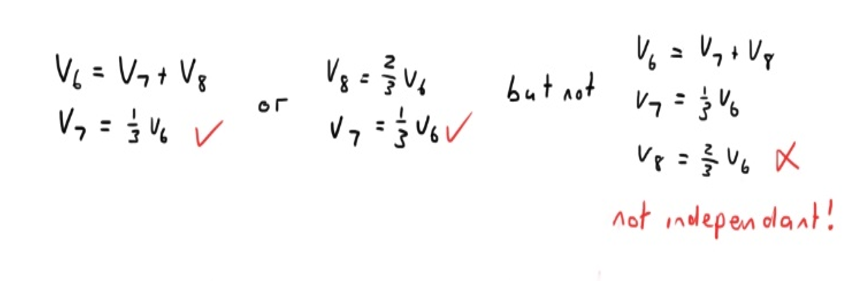 V₆ = V₇ + V₈
V₇ = 1/3 V₆ ✓
or
V₈ = 2/3 V₆
V₇ = 1/3 V₆ ✓
but not
V₆ = V₇ + V₈
V₇ = 1/3 V₆
V₈ = 2/3 V₆ ✗
not independant!